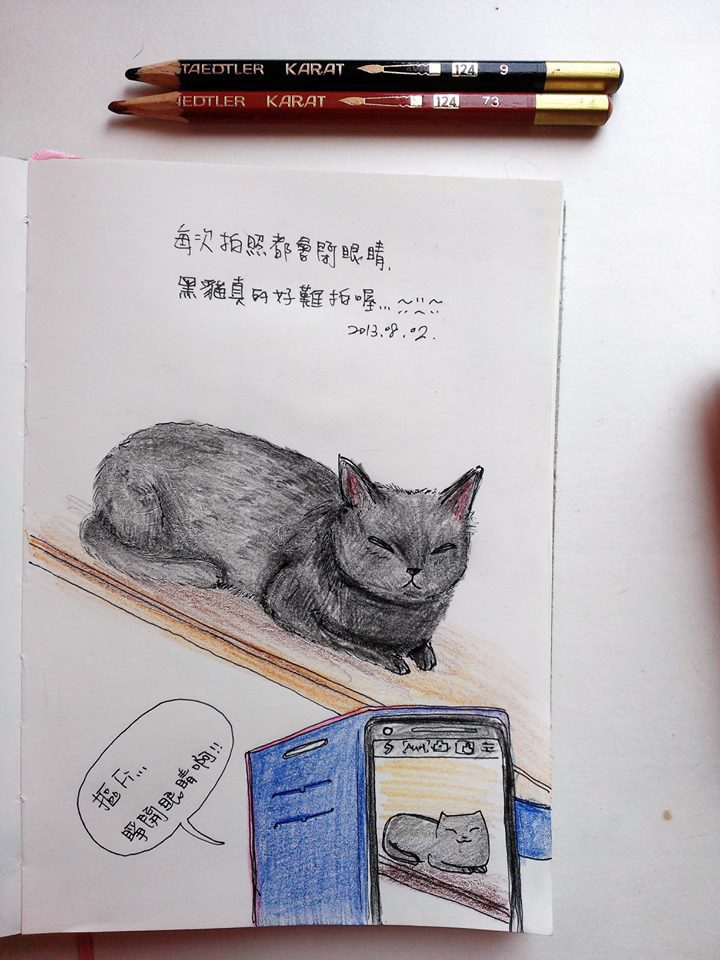 STAEDTLER KARAT 124 9
AEDTLER KARAT 124 73
每次拍照都會閉眼睛,
黑貓真的好難拍喔...
2013.08.02.
摳Fi...
睜開眼睛啊!!